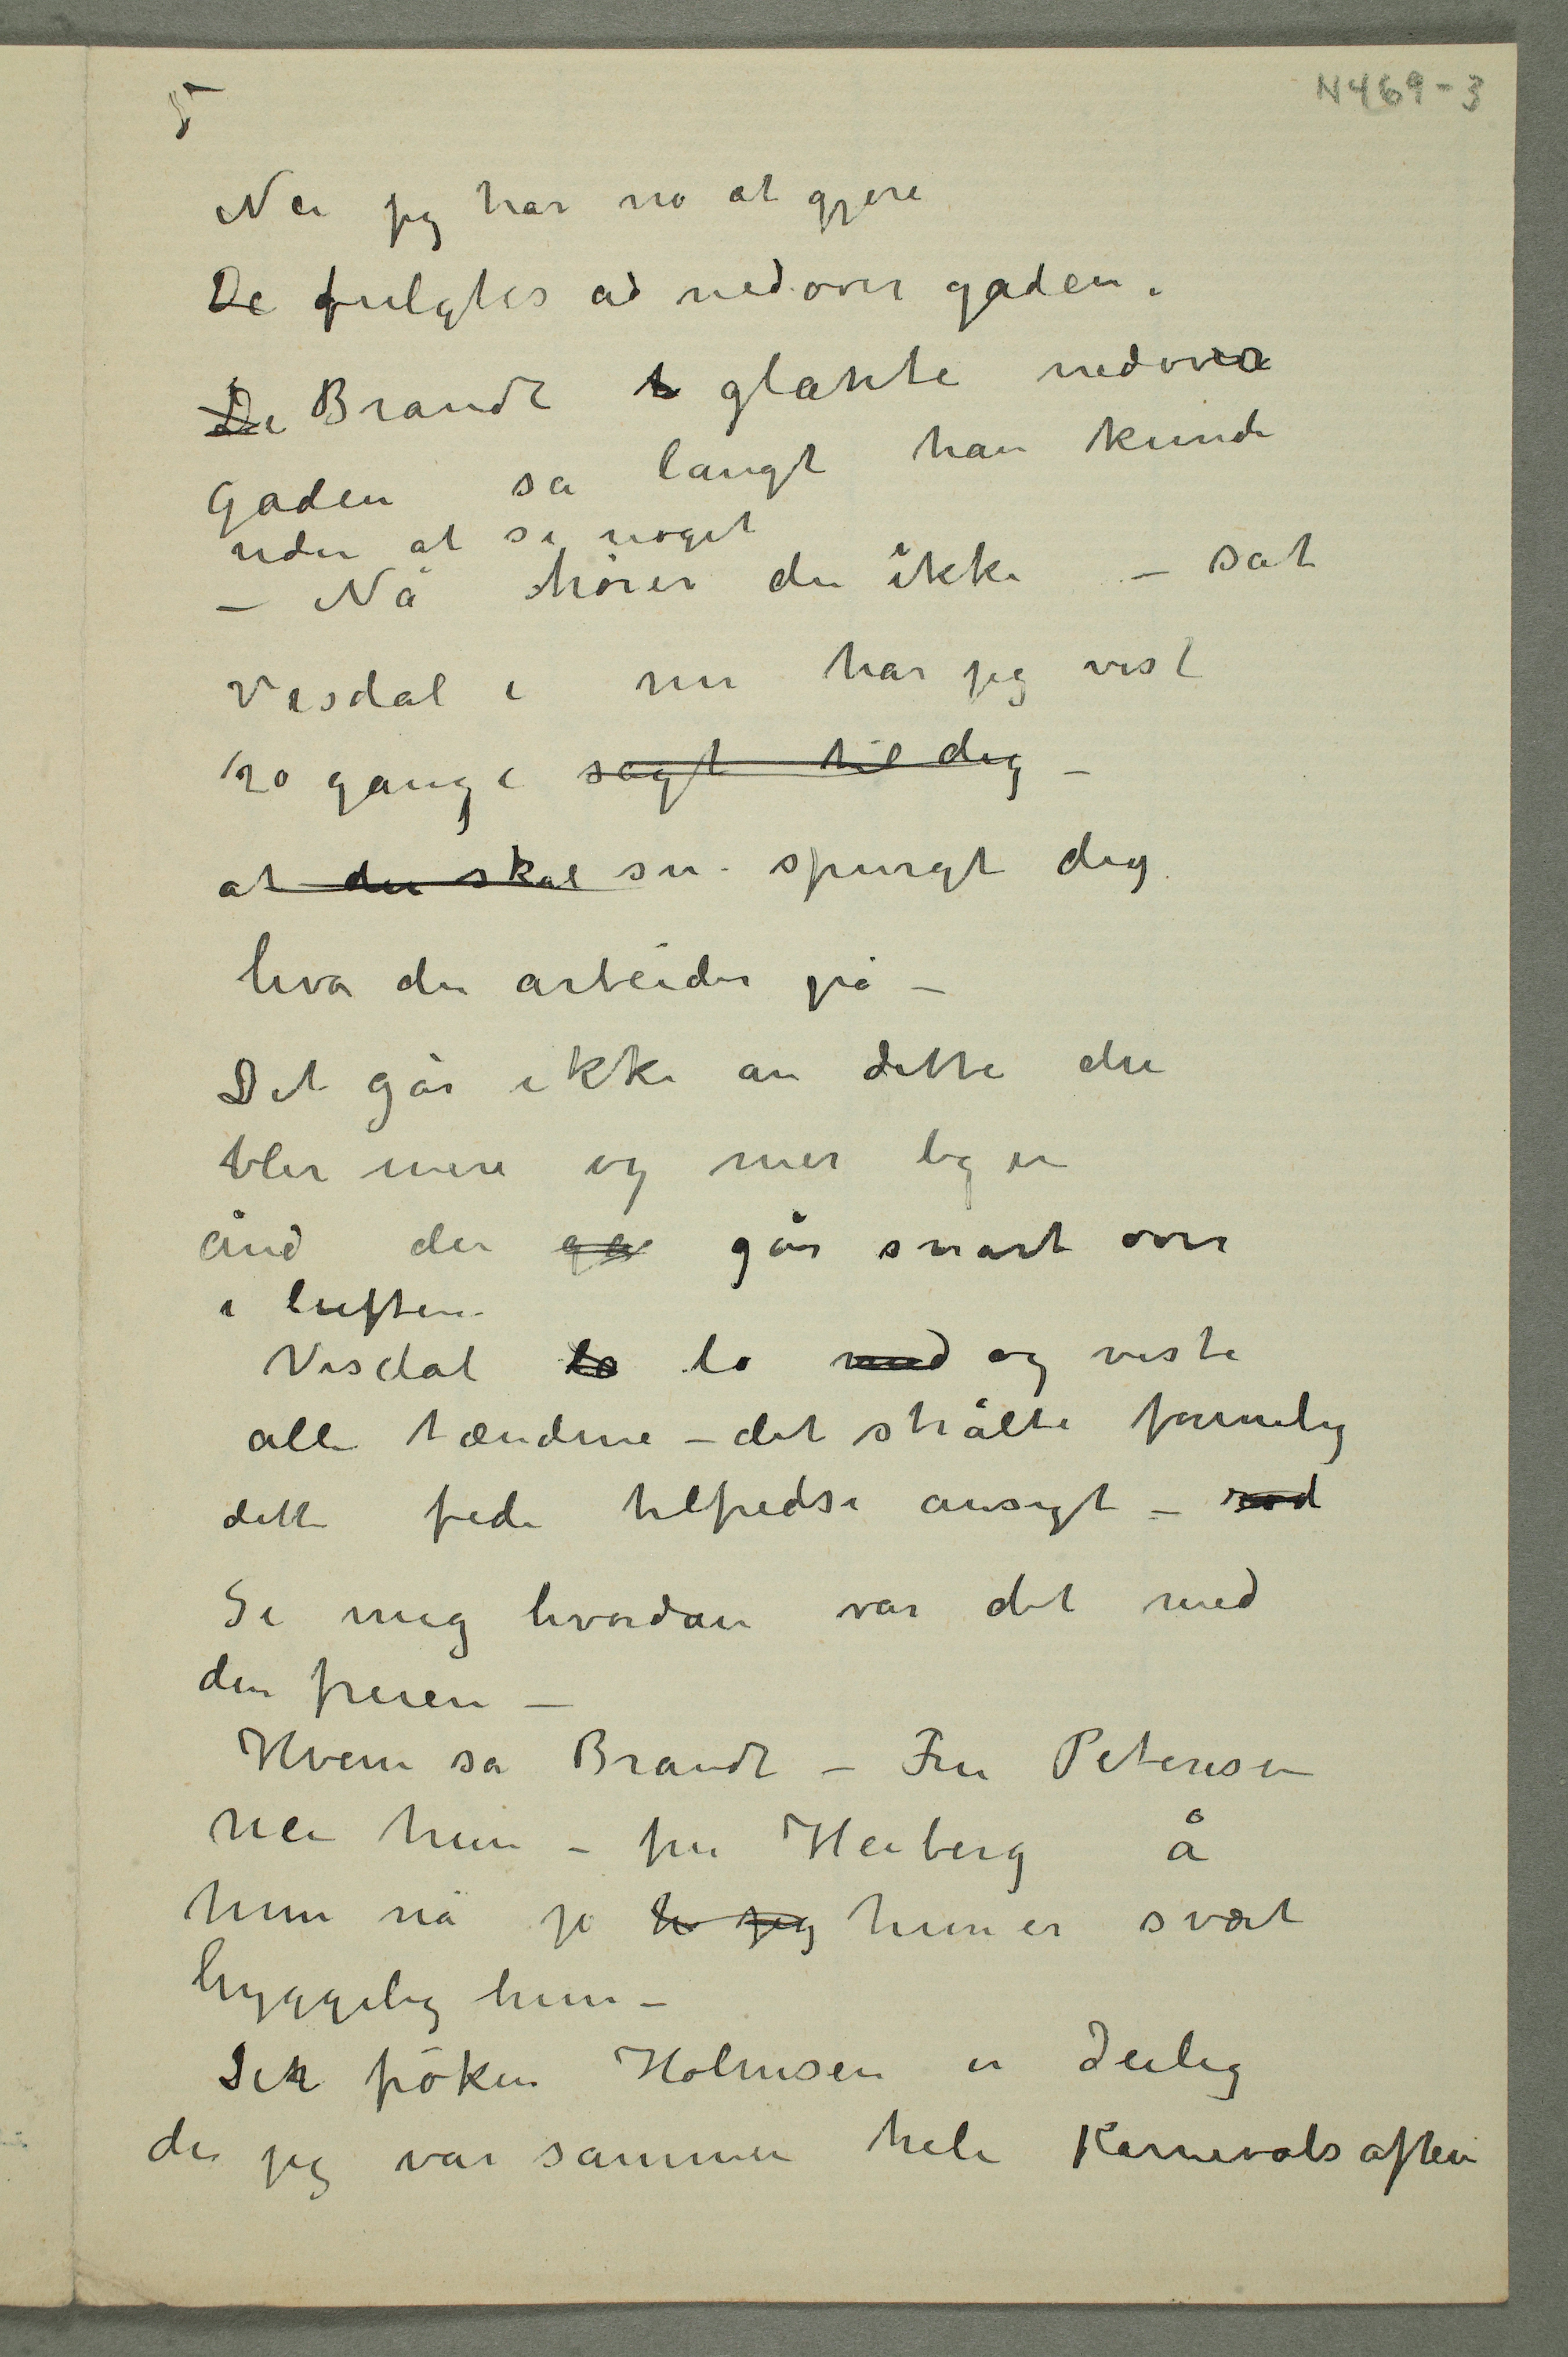 5
N469-3
Nei jeg har no at gjøre
De fulgtes ad nedover gaden.
De Brandt t glante nedover
Gaden sa langt han kunde
uden at se noget
– Nå hører du ikke – sat
Visdal i nu har jeg vist
20 gange sagt til dig –
at du skal su spurgt dig
hva du arbeider på –
Det går ikke an dette du
blir mere og mer lig en
ånd du ga går snart over
i luften
Visdal lo lo med og viste
alle tænderne – det strålte formelig
dette fede tilfredse ansigt – rød
Se mig hvordan var det med
den fruen –
Hvem sa Brandt – Fru Petersen
nei hun – fru Heiberg å
hun nå jo h jeg hun er svært
hyggelig hun –
Den frøken Holmsen er Deilig
der jeg var sammen hele Karnevalsaften